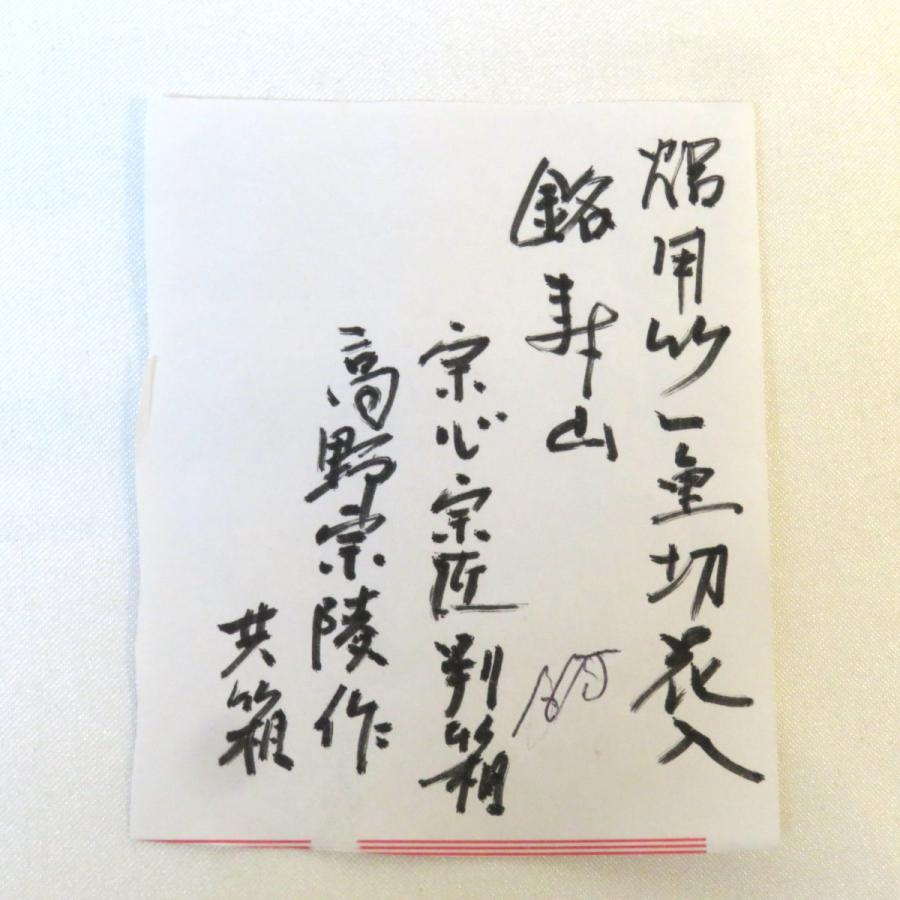 炉用竹一重切花入
銘寿山
宗心宗匠判箱
高野宗陵作
共箱